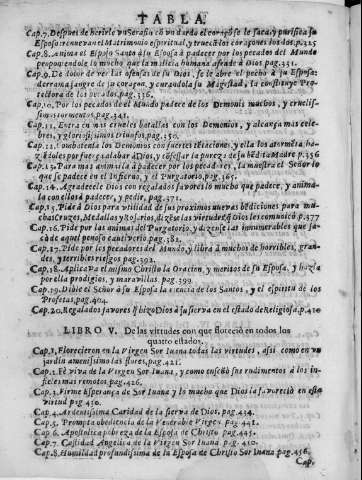 TABLA
Cap.7. Despues de herirle un Serafin con un dardo el coraçõ se le saca, y purifica su
Esposo renuevan el Matrimonio espiritual, y trueca los coraçones los dos. p.325
Cap.8. Anima el Esposo Santo à su Esposa à padecer por los pecados del Mundo
proponiendole lo mucho que la malicia humana ofende à Dios pag.331.
Cap.9. De dolor de ver las ofensas de su Dios, se le abre el pecho à su Esposa:
derrama sangre de su coraçon, y curandola su Magestad, la constituye Pro-
tectora de los pecados. pag.336.
Cap.10. Por los pecados de el Mundo padece de los Demonios muchos, y cruelis-
simos tormentos. pag.341.
Cap.11. Entra en mas crueles batallas con los Demonios, y alcança mas cele-
bres, y gloriosissimos triunfos. pag.350.
Cap.12. Combatenla los Demonios con fuertes tentaciones, y ella los atormēta, ha-
zeles por fuerça alabar à Dios, y cōfessar la pureza de su bēdita Madre p.356
Cap.13. Para mas animarla à padecer por los pecadores, la muestra el Señor lo
que se padece en el Infierno, y el Purgatorio. pag.365.
Cap.14. Agradecele Dios con regalados favores lo mucho que padece, y anima-
la con ellos à padecer, y pedir, pag.371.
Cap.15. Pide à Dios para utilidad de sus proximos nuevas bēdiciones para mu-
chas Cruzes, Medallas y Rosarios, dizese las virtudes q̄ Dios les comunicó. p.377
Cap.16. Pide por las animas del Purgatorio, y dizense las innumerables que sa-
cò de aquel penoso cautiverio pag.382.
Cap.17. Pide por los pecadores del Mundo, y libra à muchos de horribles, gran-
des, y terribles riesgos pag.392.
Cap.18. Aplicava el mismo Christo la Oracion, y meritos de su Esposa, y hazia
por ella prodigios, y maravillas. pag.399.
Cap.19. Diòle el Señor à su Esposa la ciencia de los Santos, y el espiritu de los
Profetas, pag.404.
Cap.20. Regalados favores q̄ hizo Dios à su sierva en el estado de Religiosa. p.410
LIBRO V. De las virtudes con que floreció en todos los
quatro estados.
Cap.1. Florecieron en la Virgen Sor Iuana todas las virtudes, assi como en un
jardin amenissimo las flores, pag.421.
Cap.2. Fè viva de la Virgen Sor Iuana, y como enseñò sus rudimentos à los in-
fieles mas remotos pag.426.
Cap.3. Firme Esperança de Sor Iuana y lo mucho que Dios la favoreciò en esta
virtud pag.430.
Cap.4. Ardentissima Caridad de la sierva de Dios. pag.434.
Cap.5. Prompta obediencia de la Venerable Virgen. pag.
Cap.6. Apostolica pobreza de la Esposa de Christo pag.445.
Cap.7. Castidad Angelica de la Virgen Sor Iuana. pag.450.
Cap.8. Humildad profundissima de la Esposa de Christo Sor Iuana. pag.456.
Cap.